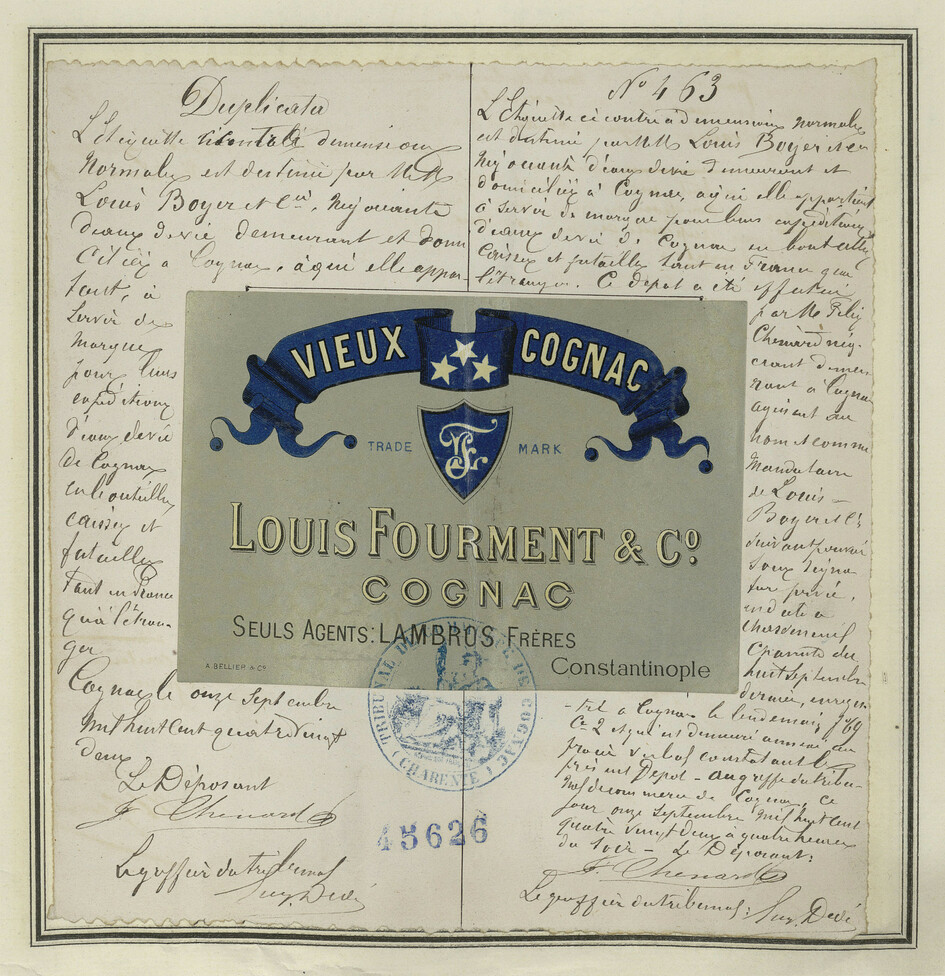 Duplicata
L'Etiquette dimension
Normale, est destiné par MM
Louis Boyer et Cie, Négociants
d'eaux de vie demeurant et domi
ciliés à Cognac, à qui elle appar-
tient, à
servir de
marque
pour leurs
expéditions
d'eaux de vie
de Cognac
en bouteilles
caisses et
futailles
tant en France
qu'à l'étran-
ger
Cognac le onze Septembre
mil huit cent quatre vingt
deux
Le Déposant
F. Chenard
Le greffier du tribunal
No 463
L'Etiquette ci contre a dimension normale
est destiné par MM Louis Boyer et Cie
Négociants d'eaux de vie demeurant et
domiciliés à Cognac, à qui elle appartient
à servir de marque pour leurs expéditions
d'eaux de vie de Cognac en bouteilles
caisses et futailles tant en France qu'a
l'étranger. Ce depot a été effectué
par M
Chenard nég-
ociant demeu
rant à Cognac
agissant au
nom et comme
Mandataire
de Louis
Boyer et Cie
suivant pouvoir
sous seing
privé,
en date à
Charente du
huit Septembre
dernier, enregis
tré à Cognac le lendemain, fo 69
Ce 2 et qui est demeuré annexé au
procès verbal constatant le
présent Depot - au greffe du tribu-
nal de commerce de Cognac, ce
jour onze Septembre mil huit cent
quatre vingt deux à quatre heures
du soir - Le Déposant:
F. Chenard
Le greffier du tribunal:
VIEUX COGNAC
TRADE MARK
LOUIS FOURMENT & Co.
COGNAC
SEULS AGENTS: LAMBROS FRÈRES
A. BELLIER & Cº
Constantinople
TRIBUNAL DE COMMERCE DE COGNAC
(CHARENTE)
45626